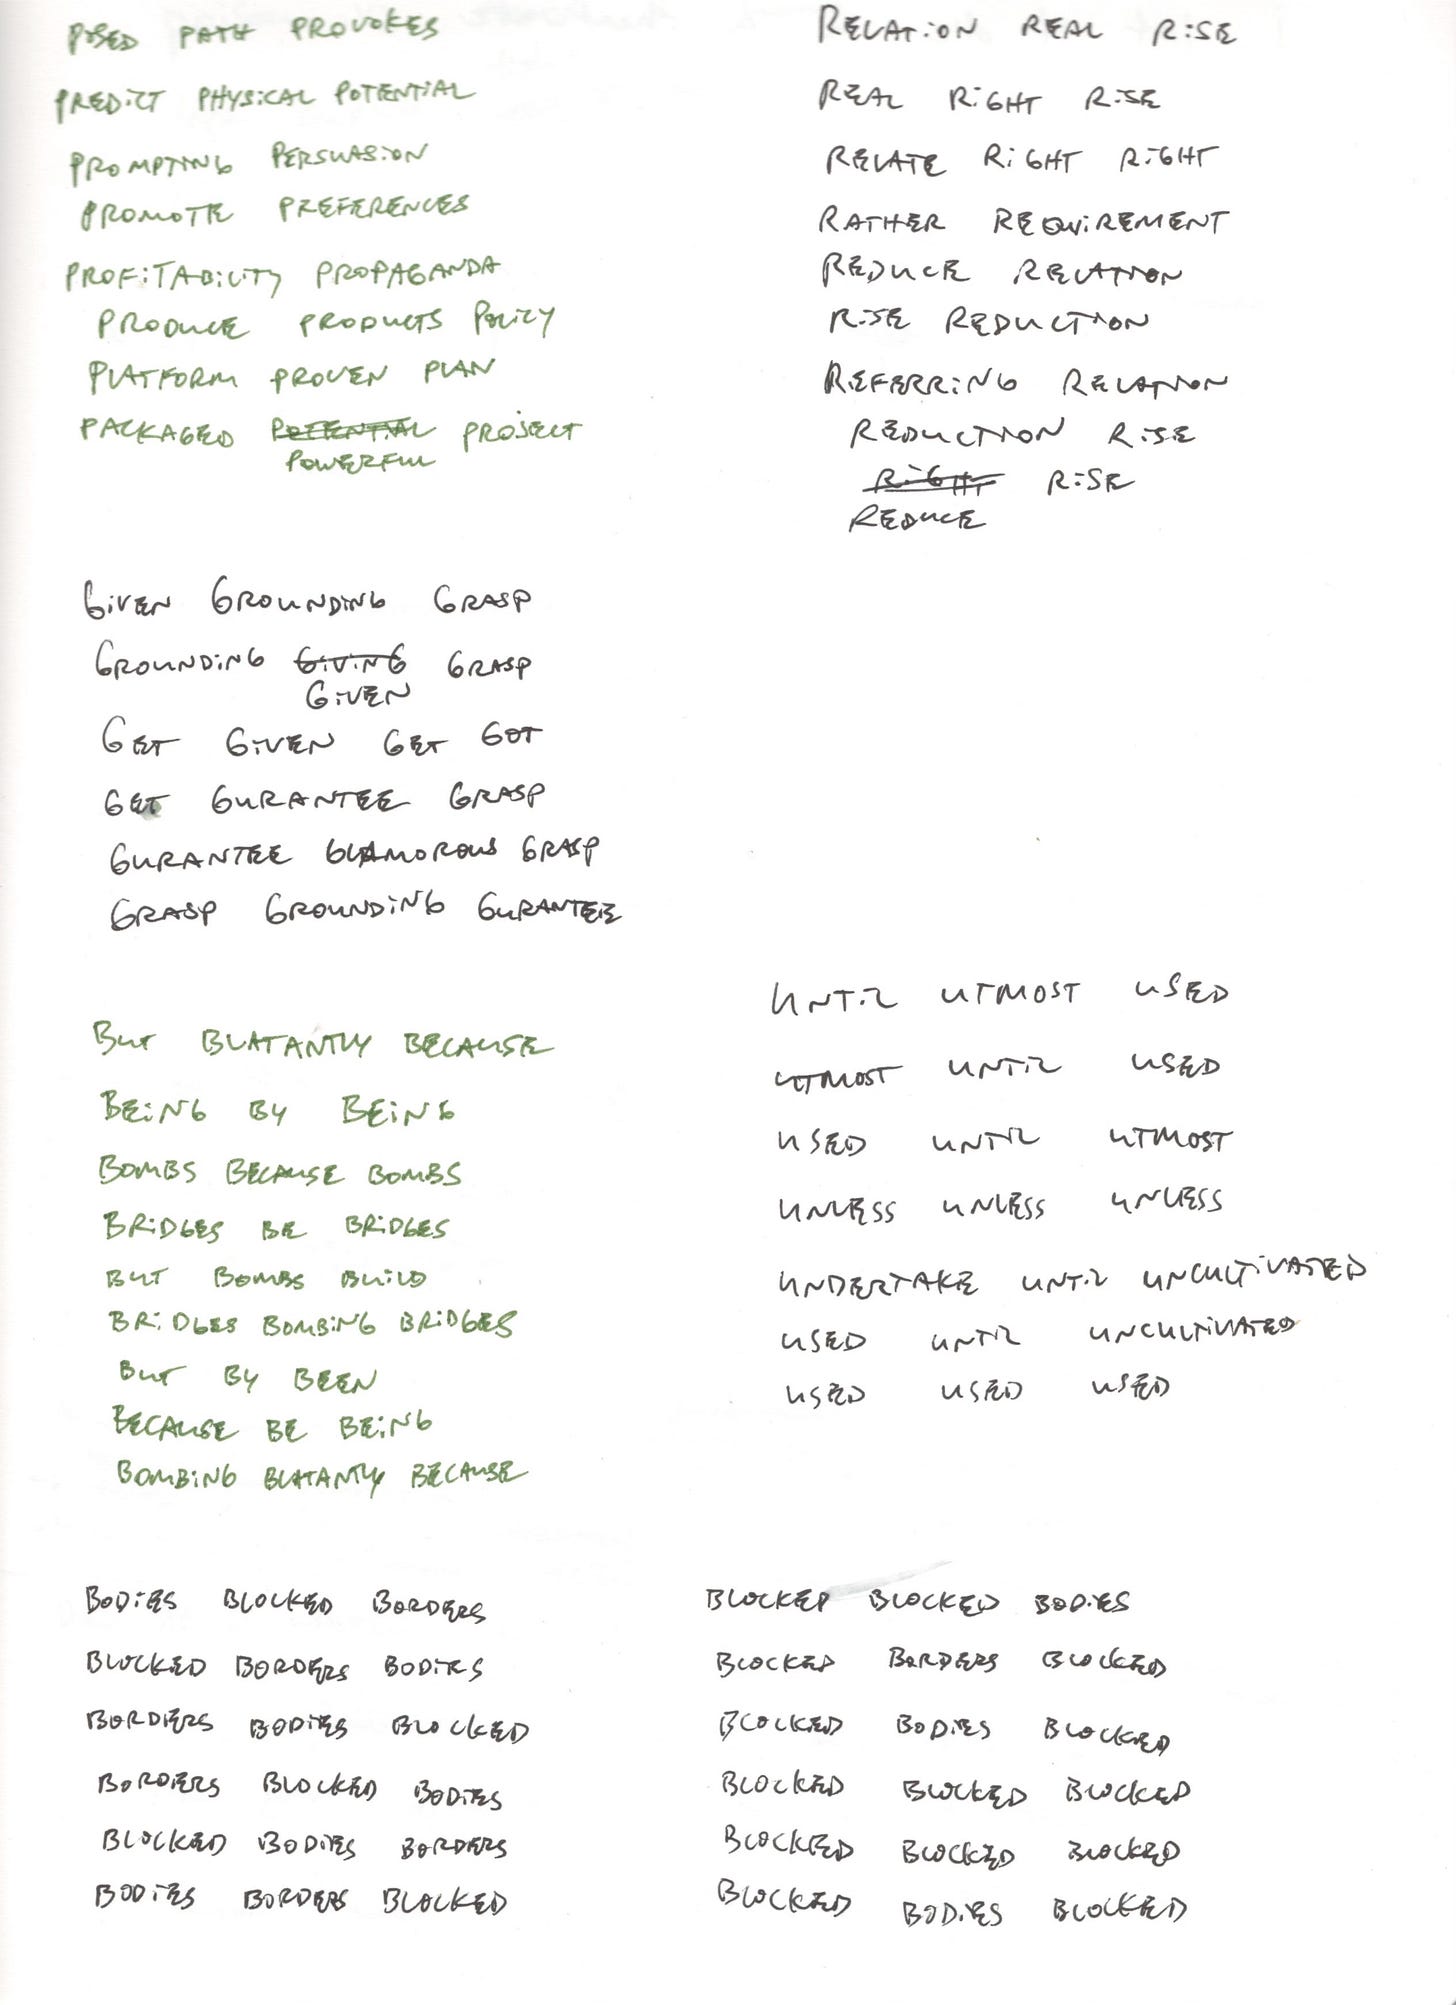 POSED PATH PROVOKES
PREDICT PHYSICAL POTENTIAL
PROMPTING PERSUASION
PROMOTE PREFERENCES
PROFITABILITY PROPAGANDA
PRODUCE PRODUCTS POLICY
PLATFORM PROVEN PLAN
PACKAGED POTENTIAL PROJECT
POWERFUL
RELATION REAL RISE
REAL RIGHT RISE
RELATE RIGHT RIGHT
RATHER REQUIREMENT
REDUCE RELATION
RISE REDUCTION
REFERRING RELATION
REDUCTION RISE
RIGHT RISE
REDUCE
GIVEN GROUNDING GRASP
GROUNDING GIVING GRASP
GIVEN
GET GIVEN GET GOT
GET GURANTEE GRASP
GURANTEE GLAMOROUS GRASP
GRASP GROUNDING GURANTEE
BUT BLATANTLY BECAUSE
BEING BY BEING
BOMBS BECAUSE BOMBS
BRIDGES BE BRIDGES
BUT BOMBS BUILD
BRIDGES BOMBING BRIDGES
BUT BY BEEN
BECAUSE BE BEING
BOMBING BLATANTLY BECAUSE
UNTIL UTMOST USED
UTMOST UNTIL USED
USED UNTIL UTMOST
UNLESS UNLESS UNLESS
UNDERTAKE UNTIL UNCULTIVATED
USED UNTIL UNCULTIVATED
USED USED USED
BODIES BLOCKED BORDERS
BLOCKED BORDERS BODIES
BORDERS BODIES BLOCKED
BORDERS BLOCKED BODIES
BLOCKED BODIES BORDERS
BODIES BORDERS BLOCKED
BLOCKED BLOCKED BODIES
BLOCKED BORDERS BLOCKED
BLOCKED BODIES BLOCKED
BLOCKED BLOCKED BLOCKED
BLOCKED BLOCKED BLOCKED
BLOCKED BODIES BLOCKED